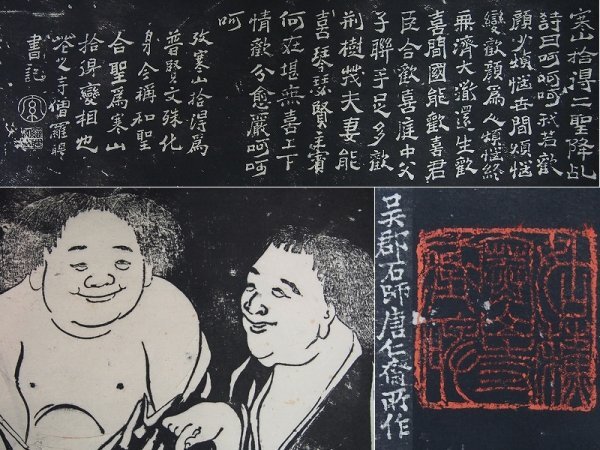 寒山拾得二聖降乩
詩曰呵呵呵我若歡
顏少煩惱世間煩惱
變歡顏為人煩惱終
無濟大道還生歡
喜間國能歡喜君
臣合歡喜庭中父
子聯手足多歡
荊樹茂夫妻能
喜琴瑟賢主賓
何在堪無喜上下
情歡分愈嚴呵呵
呵
攷寒山拾得為
普賢文殊化
身今稱和聖
合聖為寒山
拾得變相也
花之寺僧羅聘
書記
吳郡石師唐仁齋所作